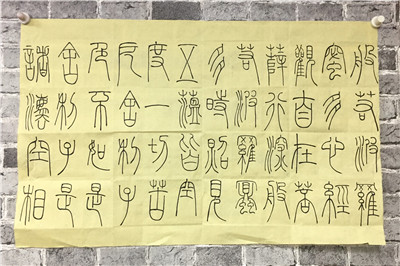 般若波羅
蜜多心經
觀自在菩
薩行深般
若波羅蜜
多時照見
五蘊皆空
度一切苦
厄舍利子
色不如是
舍利子是
諸法空相